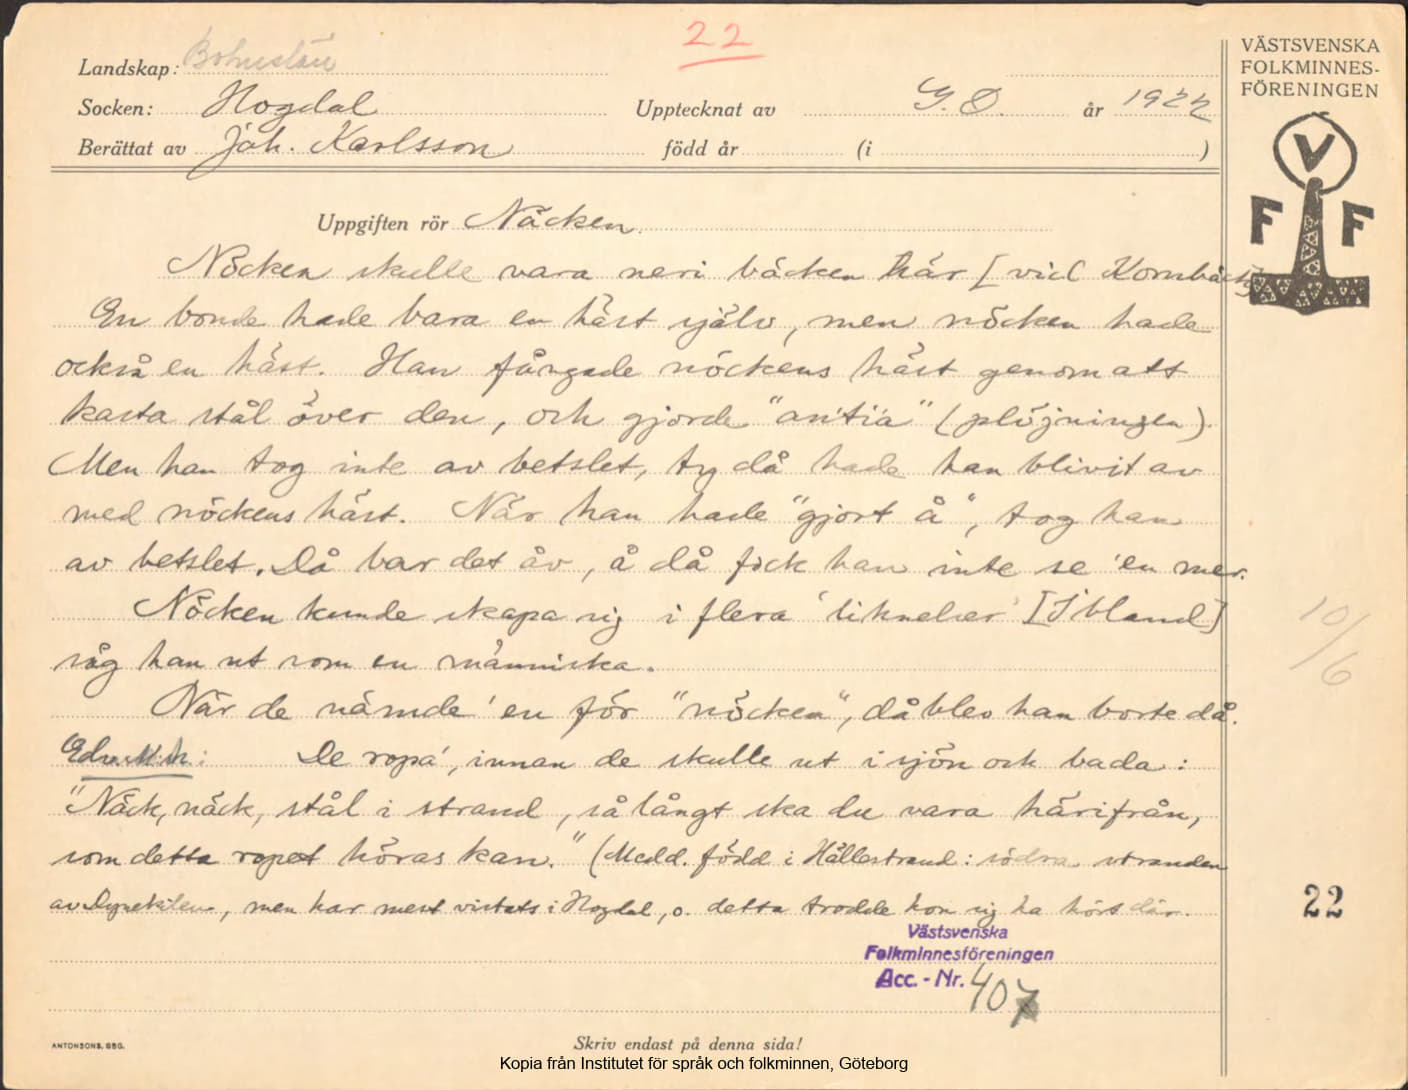 22
Landskap: Bohuslän
VÄSTSVENSKA
FOLKMINNES-
FÖRENINGEN
Socken: Hogdal Upptecknat av G. O. år 1922
Berättat av Joh. Karlsson född år (i )
V
F F
Uppgiften rör Näcken.
Nöcken skulle vara neri bäcken här [vid Kornbäck]
En bonde hade bara en häst själv, men nöcken hade
också en häst. Han fångade nöckens häst genom att
kasta stål över den, och gjorde "antia" (plöjningen).
Men han tog inte av betslet, ty då hade han blivit av
med nöckens häst. När han hade "gjort å", tog han
av betslet. Då bar det åv, å då fick han inte se 'en mer.
Nöcken kunde skapa sig i flera 'liknelser' [Ibland]
såg han ut som en människa.
10/6
När de nämde 'en för "nöcken", då blev han borte då.
De ropa', innan de skulle ut i sjön och bada:
"Näck, näck, stål i strand, så långt ska du vara härifrån,
som detta ropet höras kan." (Medd. född i Hällestrand: södra stranden
av Dynekilen, men har mest vistats i Hogdal, o. detta trodde hon sig ha hört där.
22
Västsvenska
Folkminnesföreningen
Acc. - Nr. 407
ANTONSONS, GBG.
Skriv endast på denna sida!
Kopia från Institutet för språk och folkminnen, Göteborg